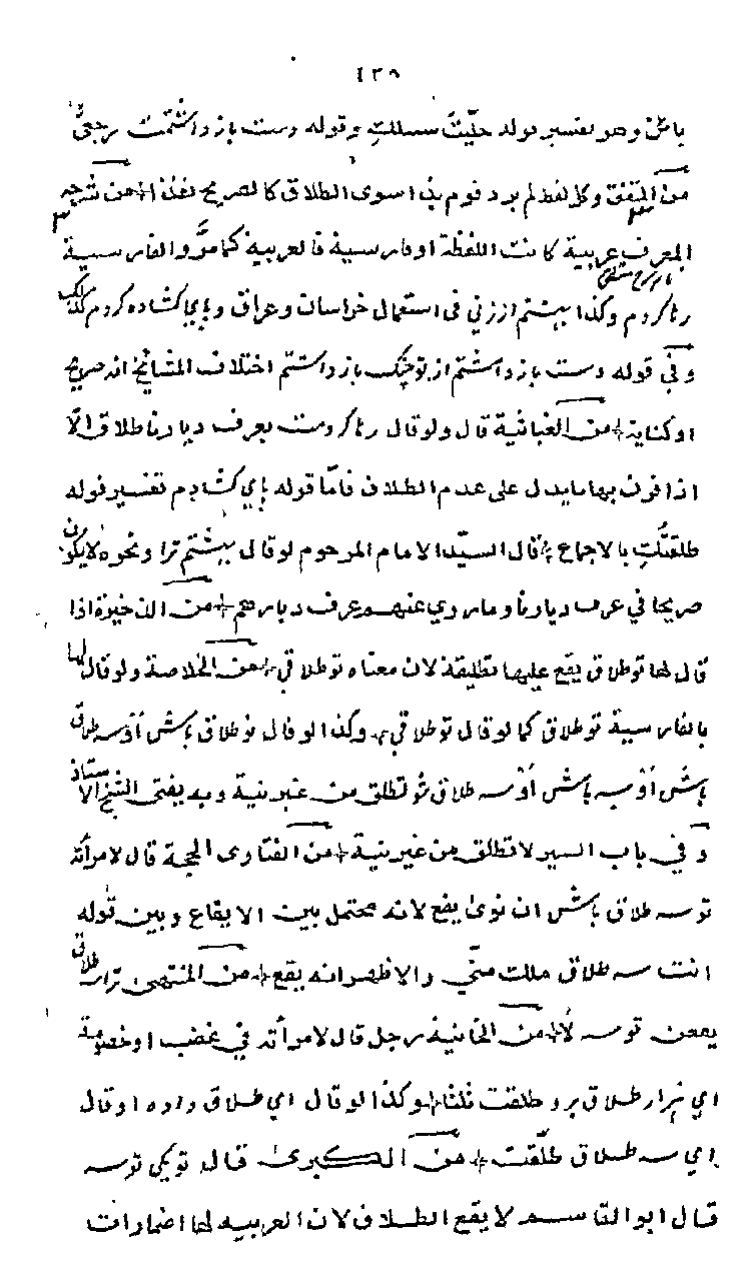 ٤٣٨
باش وهو تفسير قوله خليت سبيلك وقوله دست باز داشتمت رجعي
من المتفق وكل لفظ لم يرد قوم بذا سوى الطلاق كالصريح نفذا + من شرحه
المعرف عربية كانت اللفظة او فارسية فالعربية كما مرّ والفارسية
رها كردم وكذا بهشتم از زني في استعمال خراسان وعراق وپاي كشاده كردم كذلك
وفي قوله دست باز داشتم از تو چنك باز داشتم اختلاف المشائخ انه صريح
او كناية + من الغياثية قال ولو قال رها كردمت يعرف ديارنا طلاق الّا
اذا قرن بها ما يدل على عدم الطلاق فامّا قوله پاي كشادم تفسير قوله
طلقتُكِ بالاجماع + قال السيّد الامام المرحوم لو قال بهشتم ترا ونحوه لا يكون
صريحا في عرف ديارنا وما روي عنهم عرف ديارهم + من الذخيرة اذا
قال لها تو طلاق يقع عليها تطليقة لان معناه تو طلاقي + من الخلاصة ولو قال لها
بالفارسية تو طلاق كما لو قال تو طلاقي + وكذا لو قال تو طلاق باش او سه طلاق
باش أو سه باش أو سه طلاق شو تطلق من غير نية وبه يفتى الشيخ الاستاذ
وفي باب السير لا تطلق من غير نية + من الفتاوى الحجة قال لامرأته
تو سه طلاق باش ان نوى يقع لانه محتمل بين الايقاع وبين قوله
انت سه طلاق ملك منّي والاظهر انه يقع + من المنتهى ترا سه طلاق
يقعن تو سه لا + من الخانية رجل قال لامرأته في غضب او خصومة
اي هزار طلاق برو طلقت ثلثا + وكذا لو قال اي طلاق داده او قال
اي سه طلاق طلّقت + من الكبرى قال تو يكي تو سه
قال ابو القاسم لا يقع الطلاق لان العربية لها اضمارات